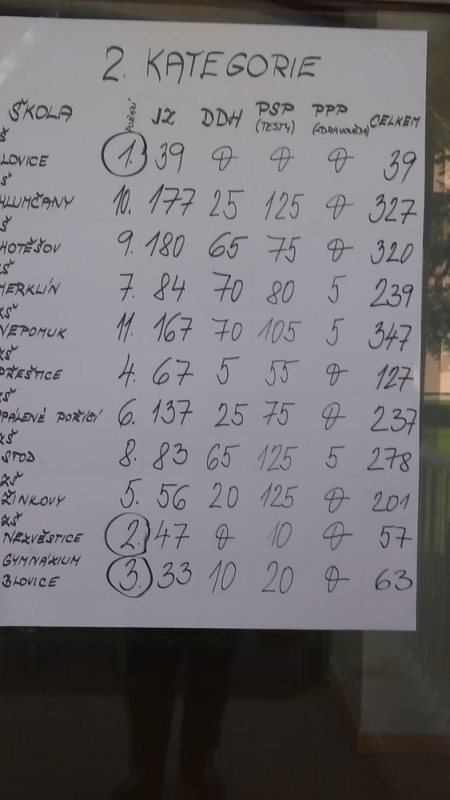 2. KATEGORIE
ŠKOLA POŘADÍ JZ DDH PSP (TESTY) PPP (ZDRAVOVĚDA) CELKEM
Š
LOVICE 1. 39 0 0 0 39
Š
HLUMČANY 10. 177 25 125 0 327
Š
HOTĚŠOV 9. 180 65 75 0 320
ZŠ
MERKLÍN 7. 84 70 80 5 239
ZŠ
NEPOMUK 11. 167 70 105 5 347
ZŠ
PŘEŠTICE 4. 67 5 55 0 127
ZŠ
SPÁLENÉ POŘÍČÍ 6. 137 25 75 0 237
ZŠ
STOD 8. 83 65 125 5 278
ZŠ
ŽINKOVY 5. 56 20 125 0 201
ZŠ
NEZVĚSTICE 2. 47 0 10 0 57
GYMNÁZIUM
BLOVICE 3. 33 10 20 0 63